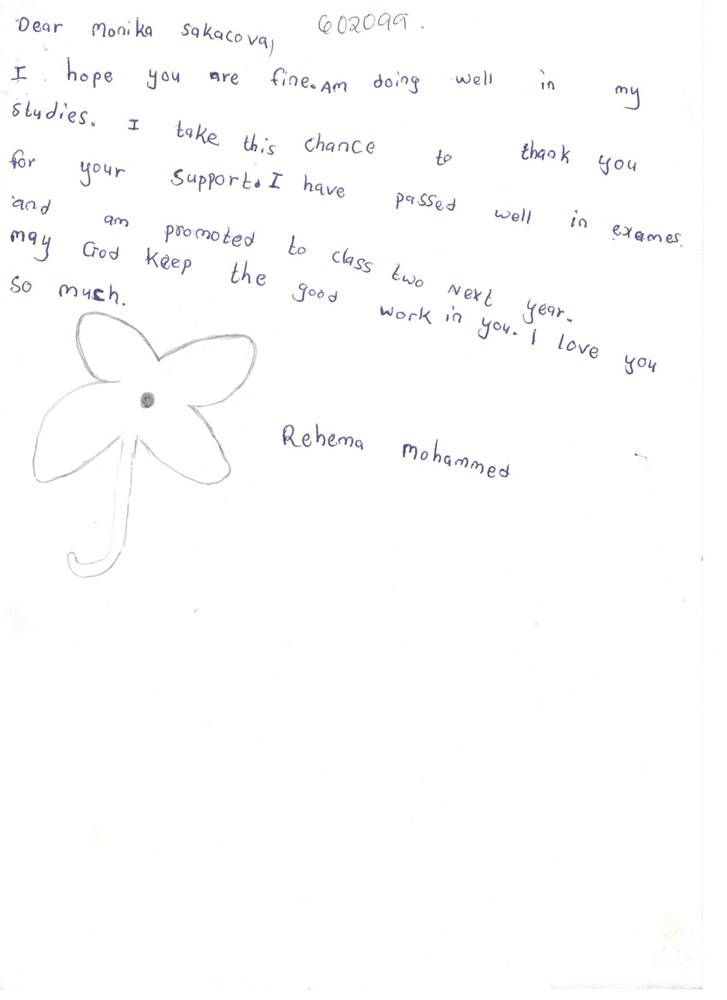 Dear Monika Sakacova, 602099.
I hope you are fine. Am doing well in my
studies. I take this chance to thank you
for your support. I have passed well in exames.
and am promoted to class two next year.
may God keep the good work in you. I love you
so much.
Rehema Mohammed